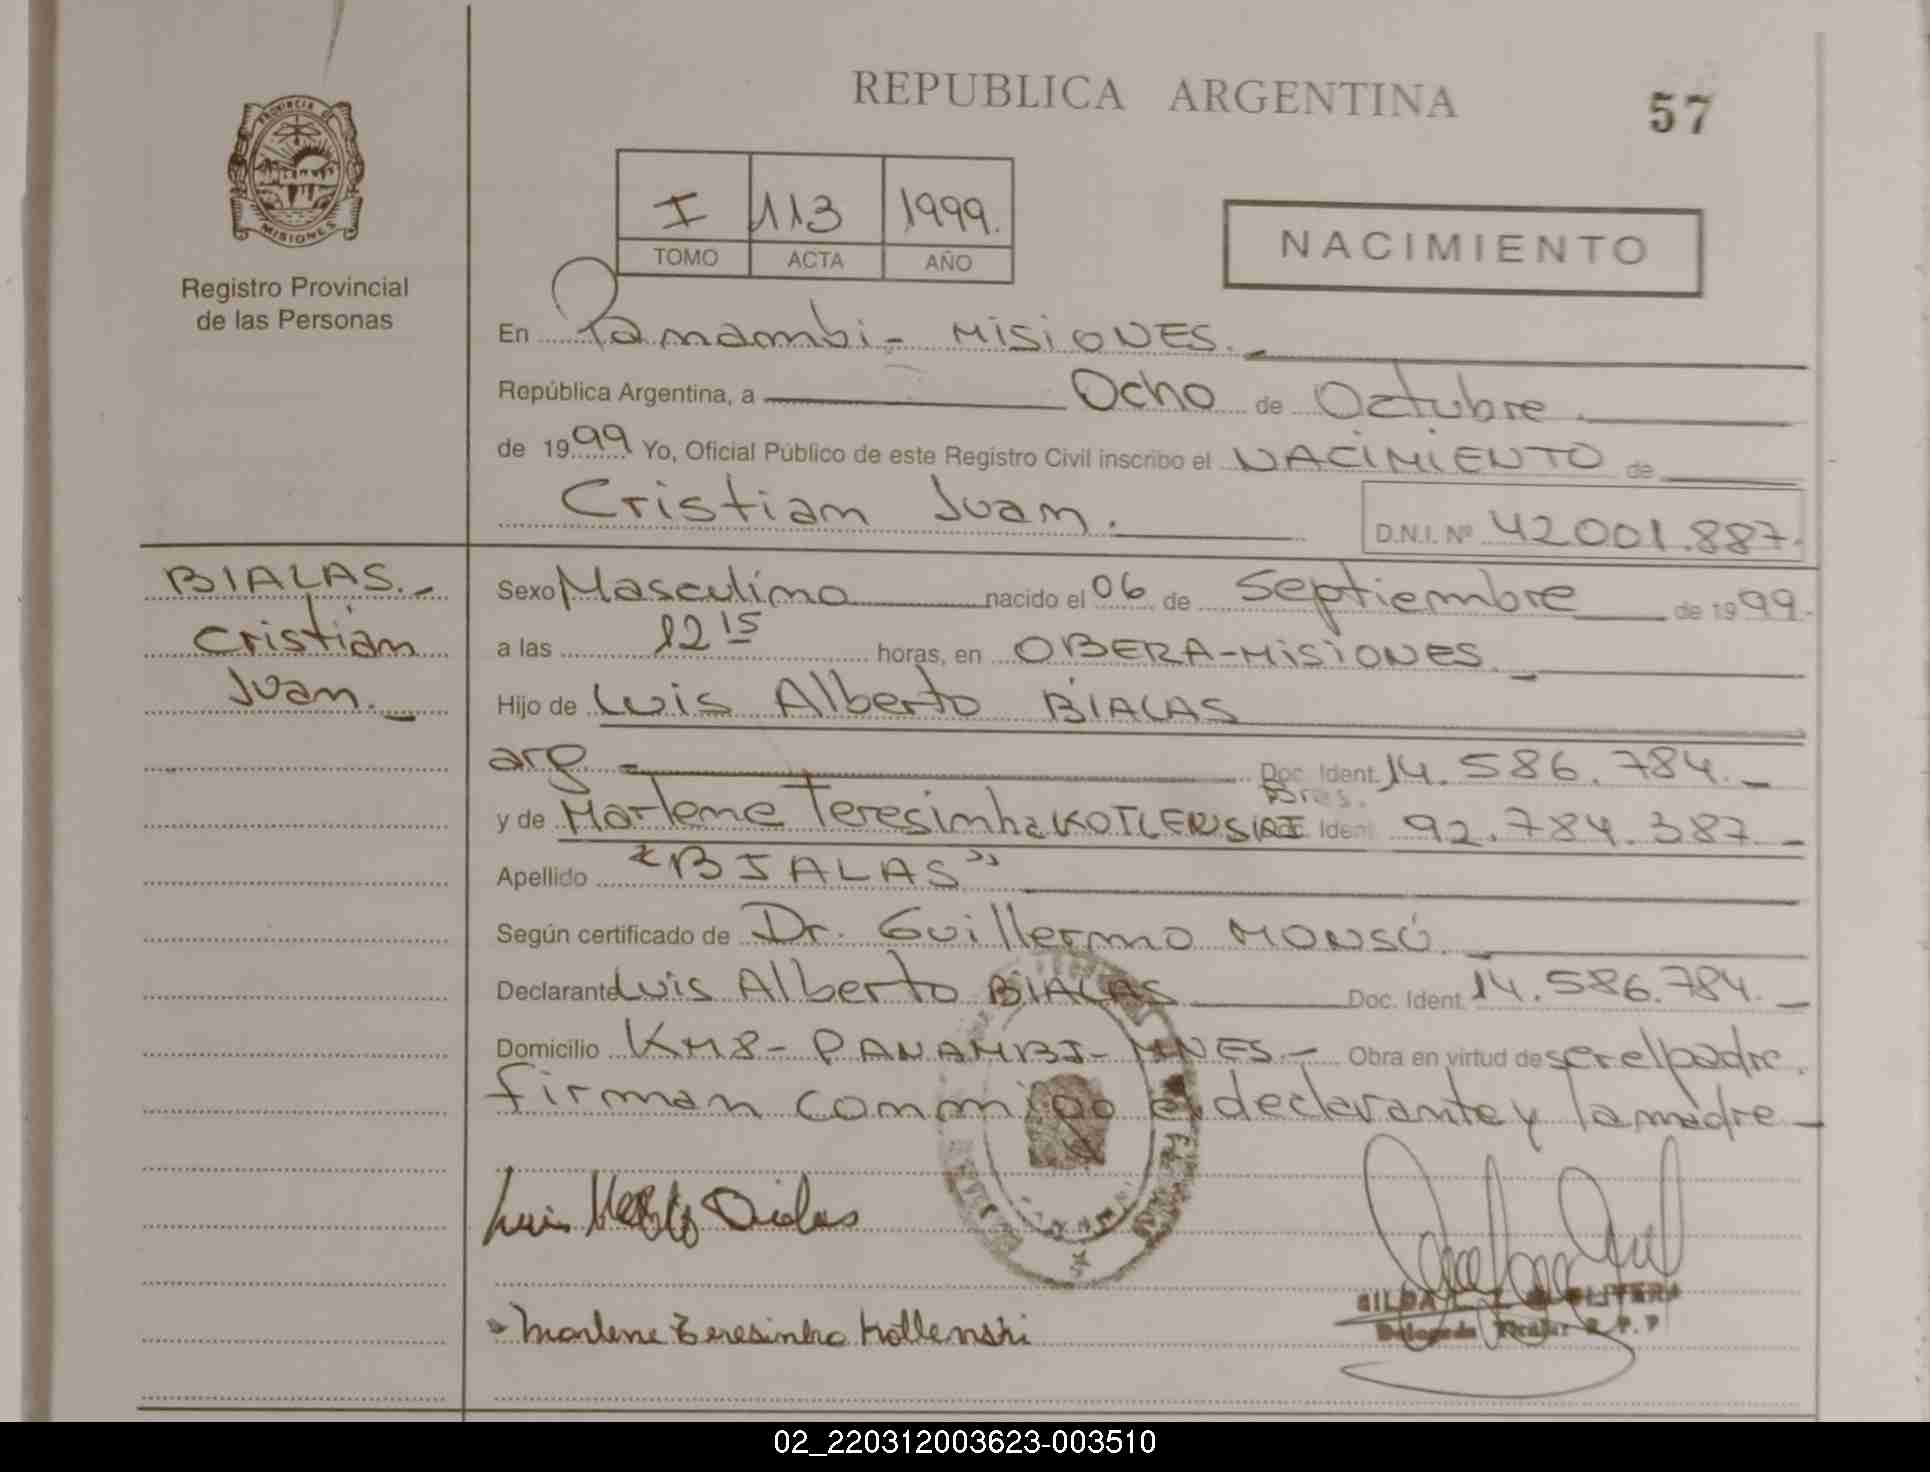 REPUBLICA ARGENTINA
57
PROVINCIA DE
MISIONES
Registro Provincial
de las Personas
I 113 1999.
TOMO ACTA AÑO
NACIMIENTO
En Panambi - MISIONES.
República Argentina, a Ocho de Octubre.
de 1999 Yo, Oficial Público de este Registro Civil inscribo el NACIMIENTO de
Cristian Juan.
D.N.I. Nº 42001.887.
BIALAS.-
Cristian
Juan.-
Sexo Masculino nacido el 06 de Septiembre de 1999.
a las 12 15 horas, en OBERA-MISIONES.
Hijo de Luis Alberto BIALAS
arg. Doc. Ident. 14.586.784.-
Bres.
y de Marlene Teresinha KOTLENSKI Ident 92.784.387-
Apellido "BIALAS"
Según certificado de Dr. Guillermo MONSÚ.
Declarante Luis Alberto BIALAS Doc. Ident. 14.586.784.-
Domicilio KM8- PANAMBI- MNES.- Obra en virtud de ser el padre.
firman conmigo el declarante y la madre-
Luis Alberto Bialas
Marlene Teresinha Kotlenski
02_220312003623-003510